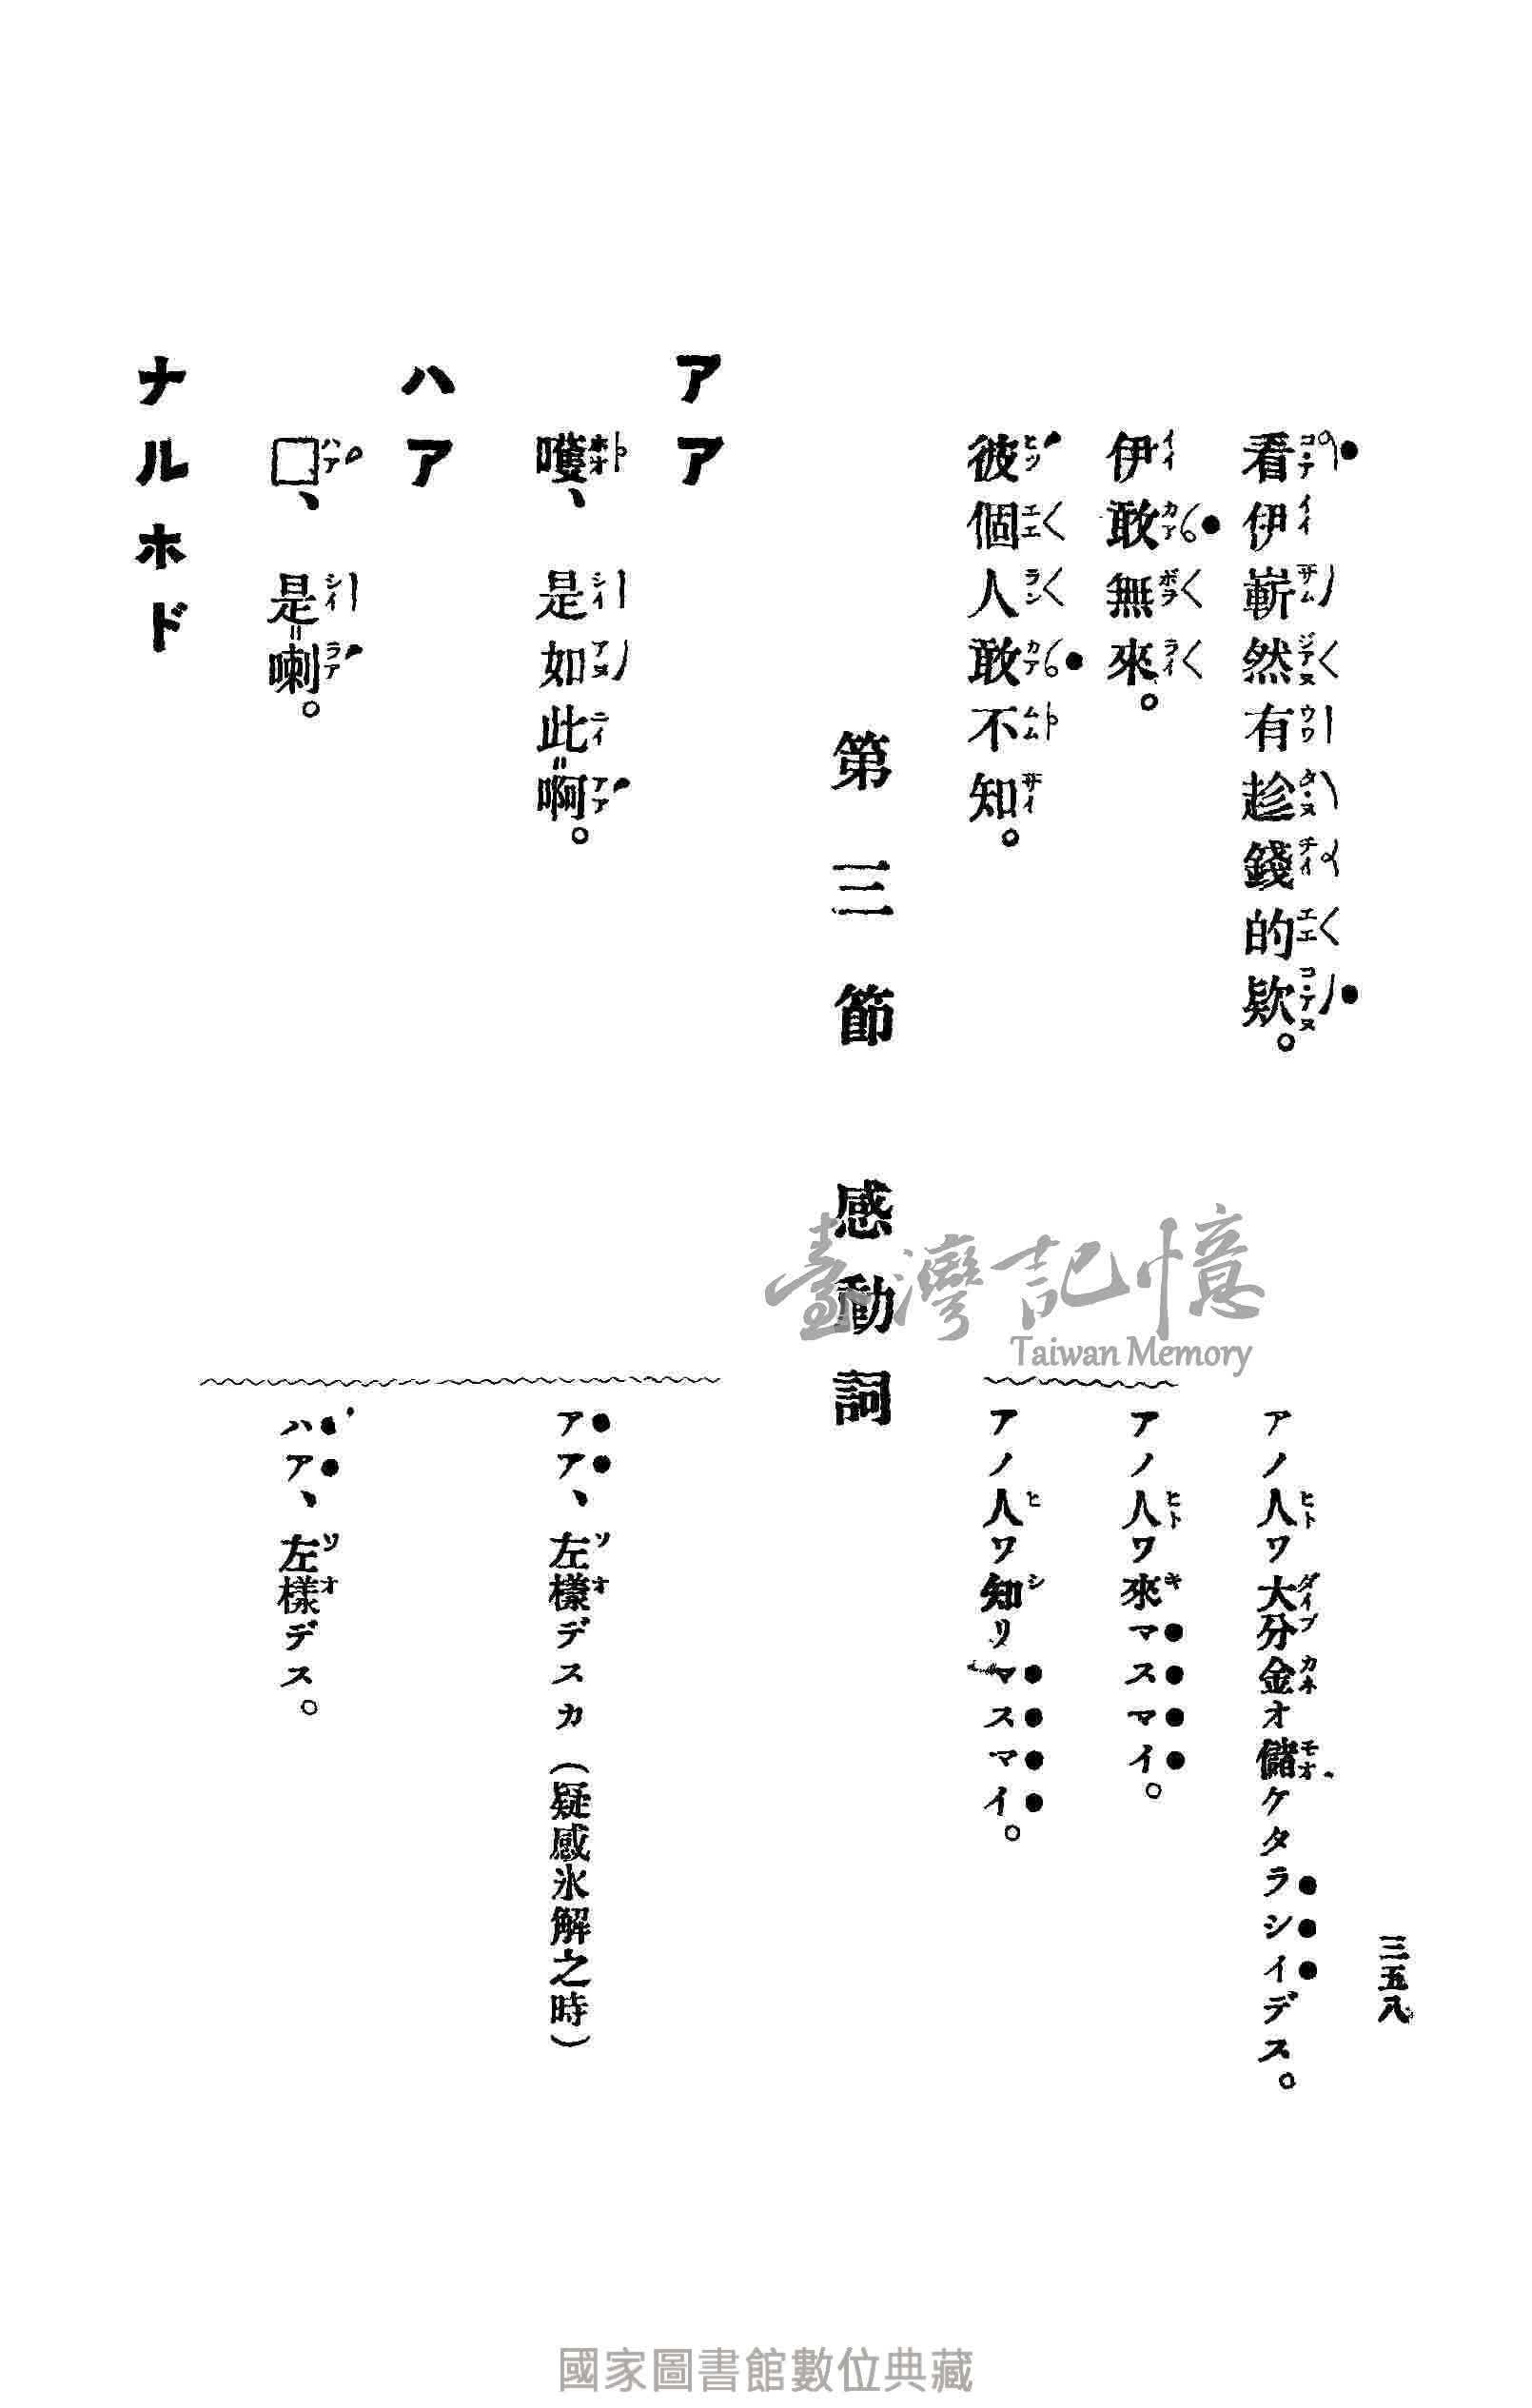 三五八
看伊嶄然有趁錢的欵。
アノ人ワ大分金オ儲ケタラシイデス。
伊敢無來。
アノ人ワ來マスマイ。
彼個人敢不知。
アノ人ワ知リマスマイ。
第三節 感動詞
アア
嚄、是如此=啊。
アア、左樣デスカ(疑惑氷解之時)
ハア
□、是=喇。
ハア、左樣デス。
ナルホド
臺灣記憶
Taiwan Memory
國家圖書館數位典藏